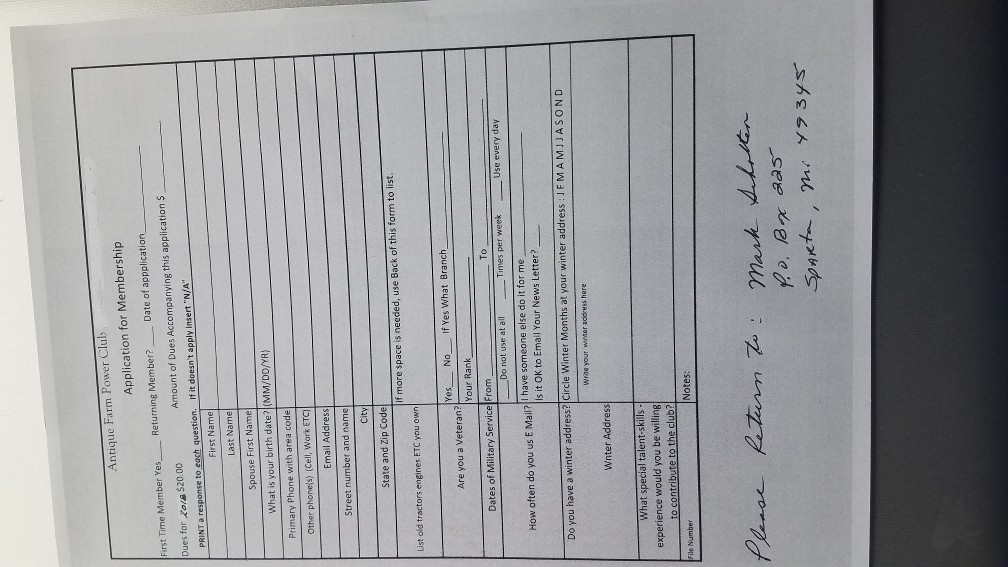 Antique Farm Power Club
Application for Membership
First Time Member Yes____ Returning Member? ____ Date of appplication____
Dues for 2018 $20.00 Amount of Dues Accompanying this application $ ____
PRINT a response to each question. If it doesn't apply insert "N/A"
First Name
Last Name
Spouse First Name
What is your birth date? (MM/DD/YR)
Primary Phone with area code
Other phone(s) (Cell, Work ETC)
Email Address
Street number and name
City
State and Zip Code
If more space is needed, use Back of this form to list.
List old tractors engines ETC you own
Are you a Veteran? Yes____ No____ If Yes What Branch____
Your Rank____
Dates of Military Service From____ To____
____Do not use at all ____Times per week ____Use every day
How often do you us E Mail? I have someone else do it for me____
Is it OK to Email Your News Letter? ____
Do you have a winter address? Circle Winter Months at your winter address : J F M A M J J A S O N D
Write your winter address here
Wnter Address
What special talent-skills -
experience would you be willing
to contribute to the club?
File Number Notes:
Please Return To: Mark Scholten
P.O. Box 225
SPARTA, Mi 49345